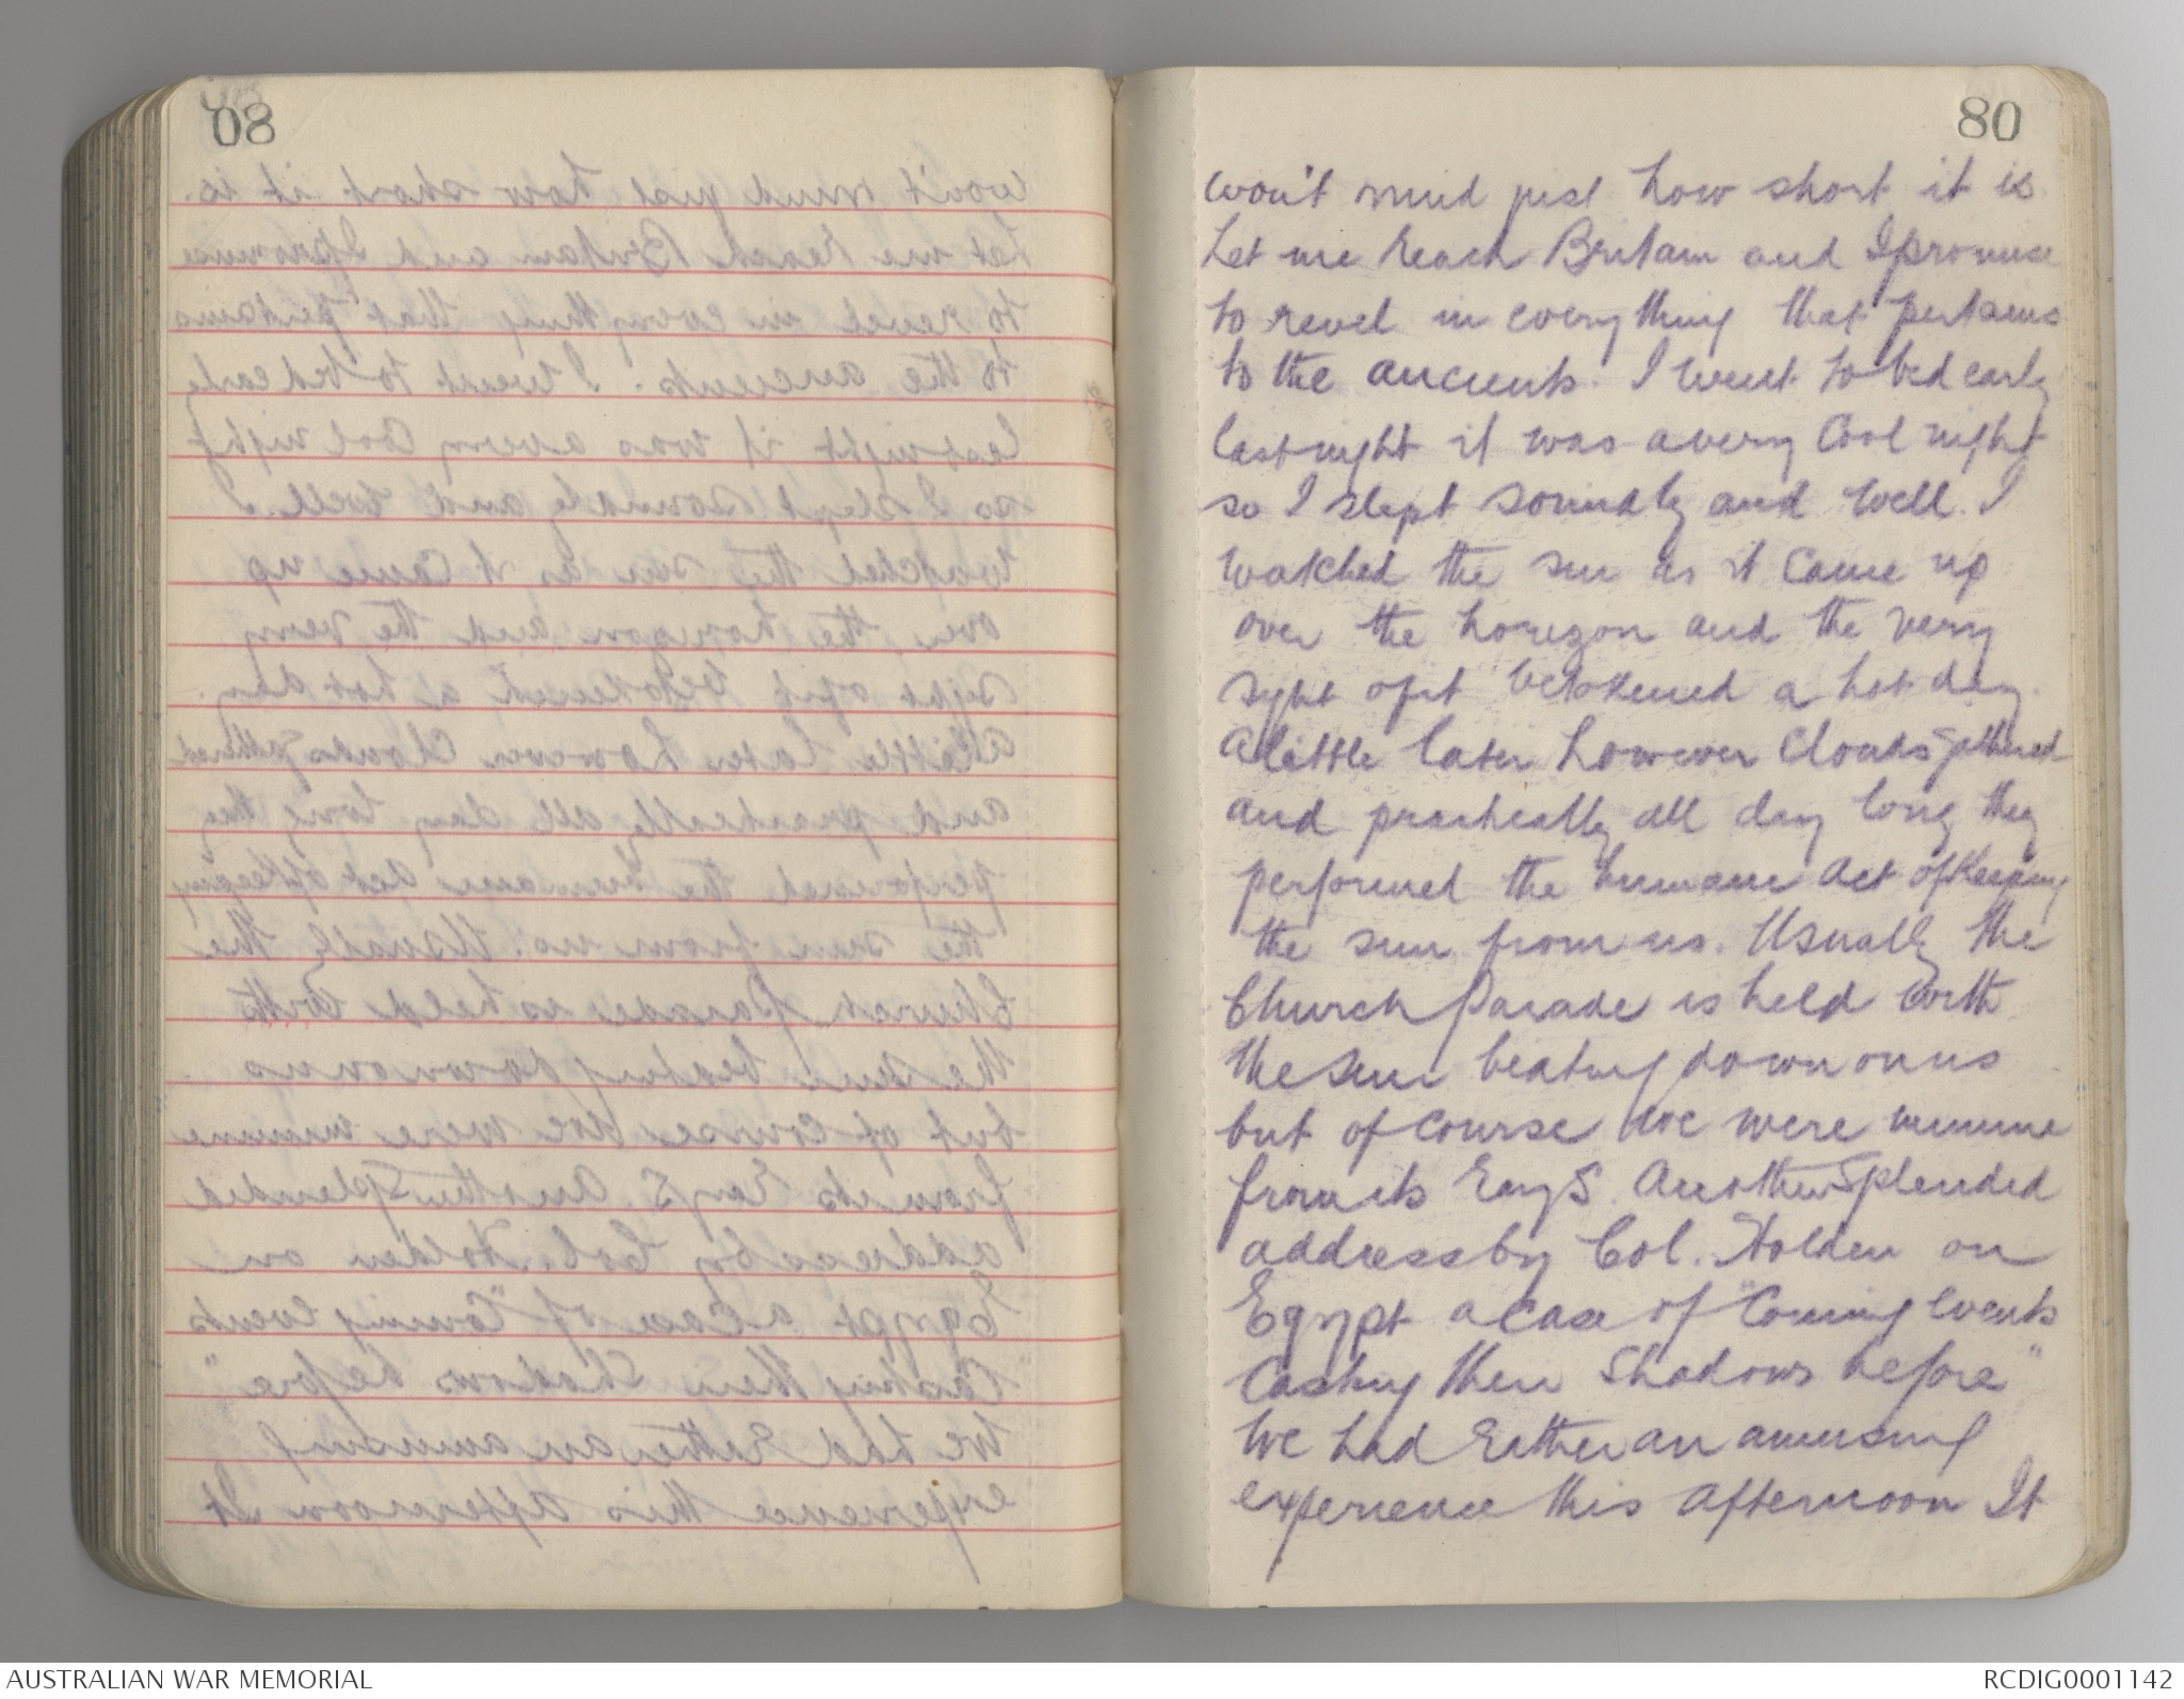 80
won't mind just how short it is
Let me reach Britain and I promise
to revel in everything that pertains
to the ancients. I went to bed early
last night it was a very cool night
so I slept soundly and well. I
watched the sun as it came up
over the horizon and the very
sight of it betokened a hot day.
A little later however clouds gathered
and practically all day long they
performed the humane act of keeping
the sun from us. Usually the
Church Parade is held with
the sun beating down on us
but of course we were immune
from its rays. Another splendid
address by Col. Holden on
Egypt a case of "Coming events
casting their shadows before"
We had rather an amusing
experience this afternoon It
AUSTRALIAN WAR MEMORIAL
RCDIG0001142